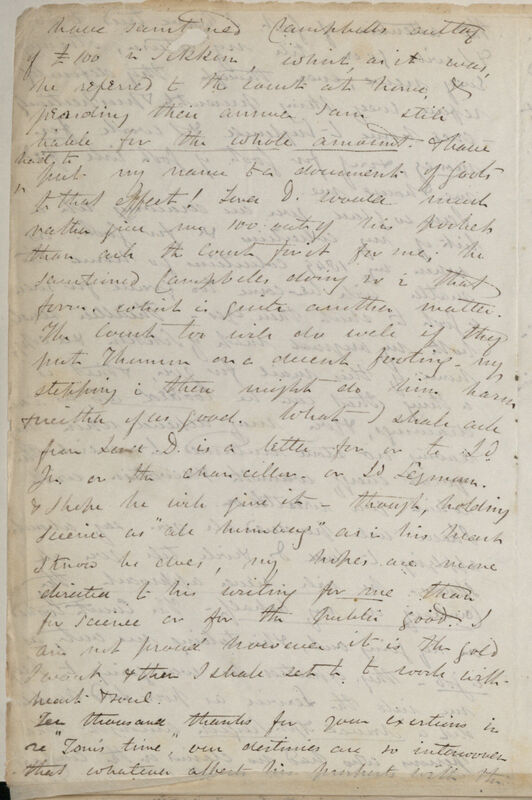 have sanctioned Campbells outlay
of £100 in Sikkim, which, as it was,
he referred to the court at home, &
pending their answer I am still
liable for the whole amount. I have
had, to
put my name to a document of Govts
to that effect! Lord D. would much
rather give me 100 out of his pocket
than ask the court first for me: he
sanctioned Campbells doing so in that
form, which is quite another matter.
The Court too will do well if they
put Thomson on a decent footing — my
stepping in then might do him harm
& neither of us good. What I shall ask
from Lord D. is a letter for or to Ld
Jn. or the chancellor. or Ld Seymour.
& I hope he will give it — though, holding
science as "all humbug" as in his heart
I know he does, my hopes are more
directed to his writing for me than
for science or for the public good. I
am not proud however it is the gold
I want & then I shall set to, to work with
heart & soul.
Ten thousand thanks for your exertions in
re "Toms time", our destinies are so interwoven
that whatever affects his prospects with the